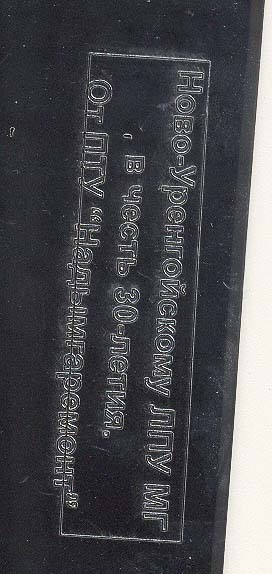 Ново-Уренгойскому ЛПУ МГ
В честь 30-летия.
От ПТУ "Надымгазремонт"